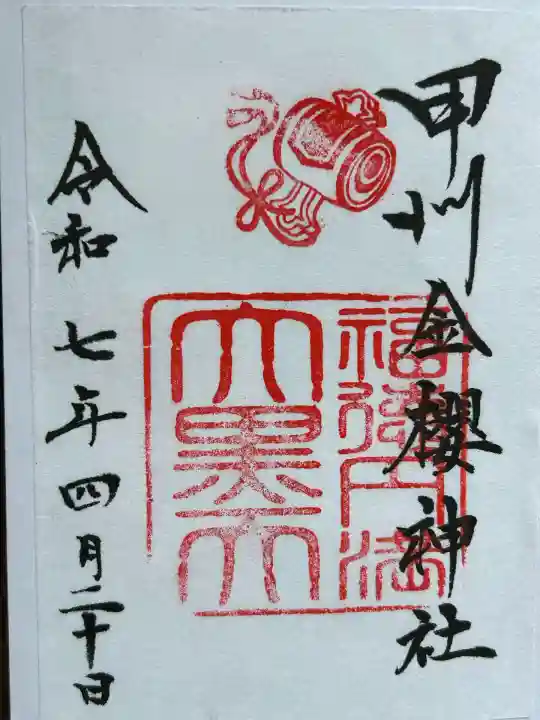 甲州
金櫻神社
福徳円満
大黒天
令和七年四月二十日